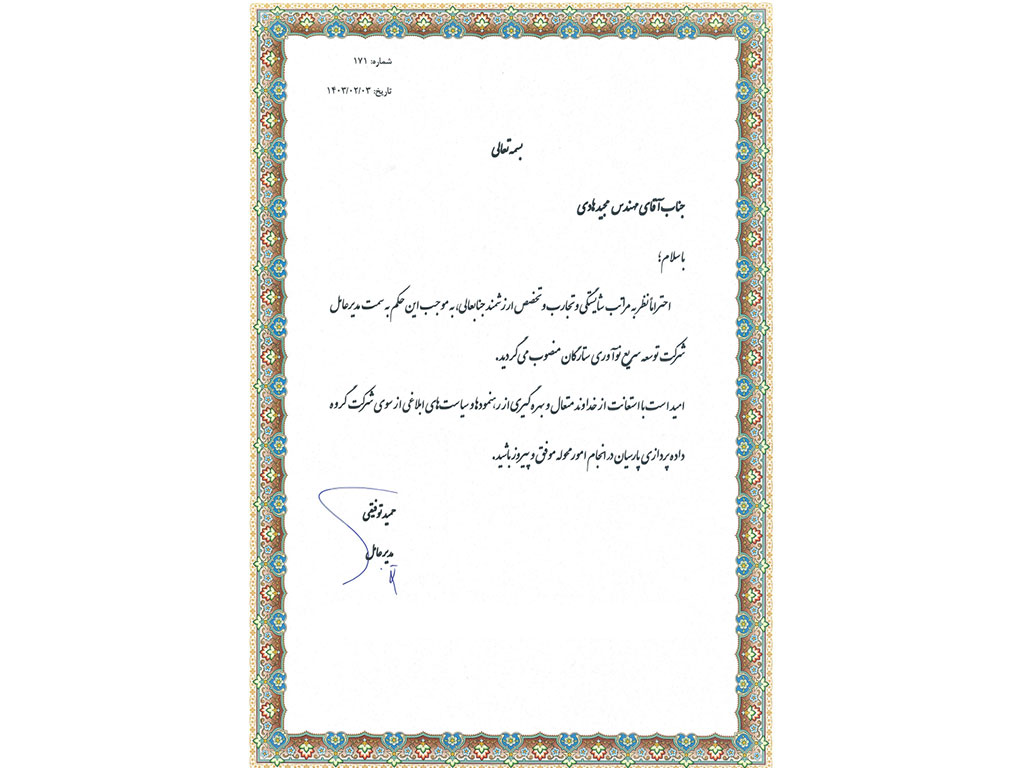 شماره: ۱۷۱
تاریخ: ۱۴۰۳/۰۲/۰۳
بسمه تعالی
جناب آقای مهندس مجید هادی
با سلام؛
احتراماً نظر به مراتب شایستگی و تجارب و تخصص ارزشمند جنابعالی، به موجب این حکم به سمت مدیرعامل
شرکت توسعه سریع نوآوری ستارگان منصوب می‌گردید.
امید است با استعانت از خداوند متعال و بهره گیری از رهنمودها و سیاست‌های ابلاغی از سوی شرکت گروه
داده پردازی پارسیان در انجام امور محوله موفق و پیروز باشید.
حمید توفیقی
مدیرعامل